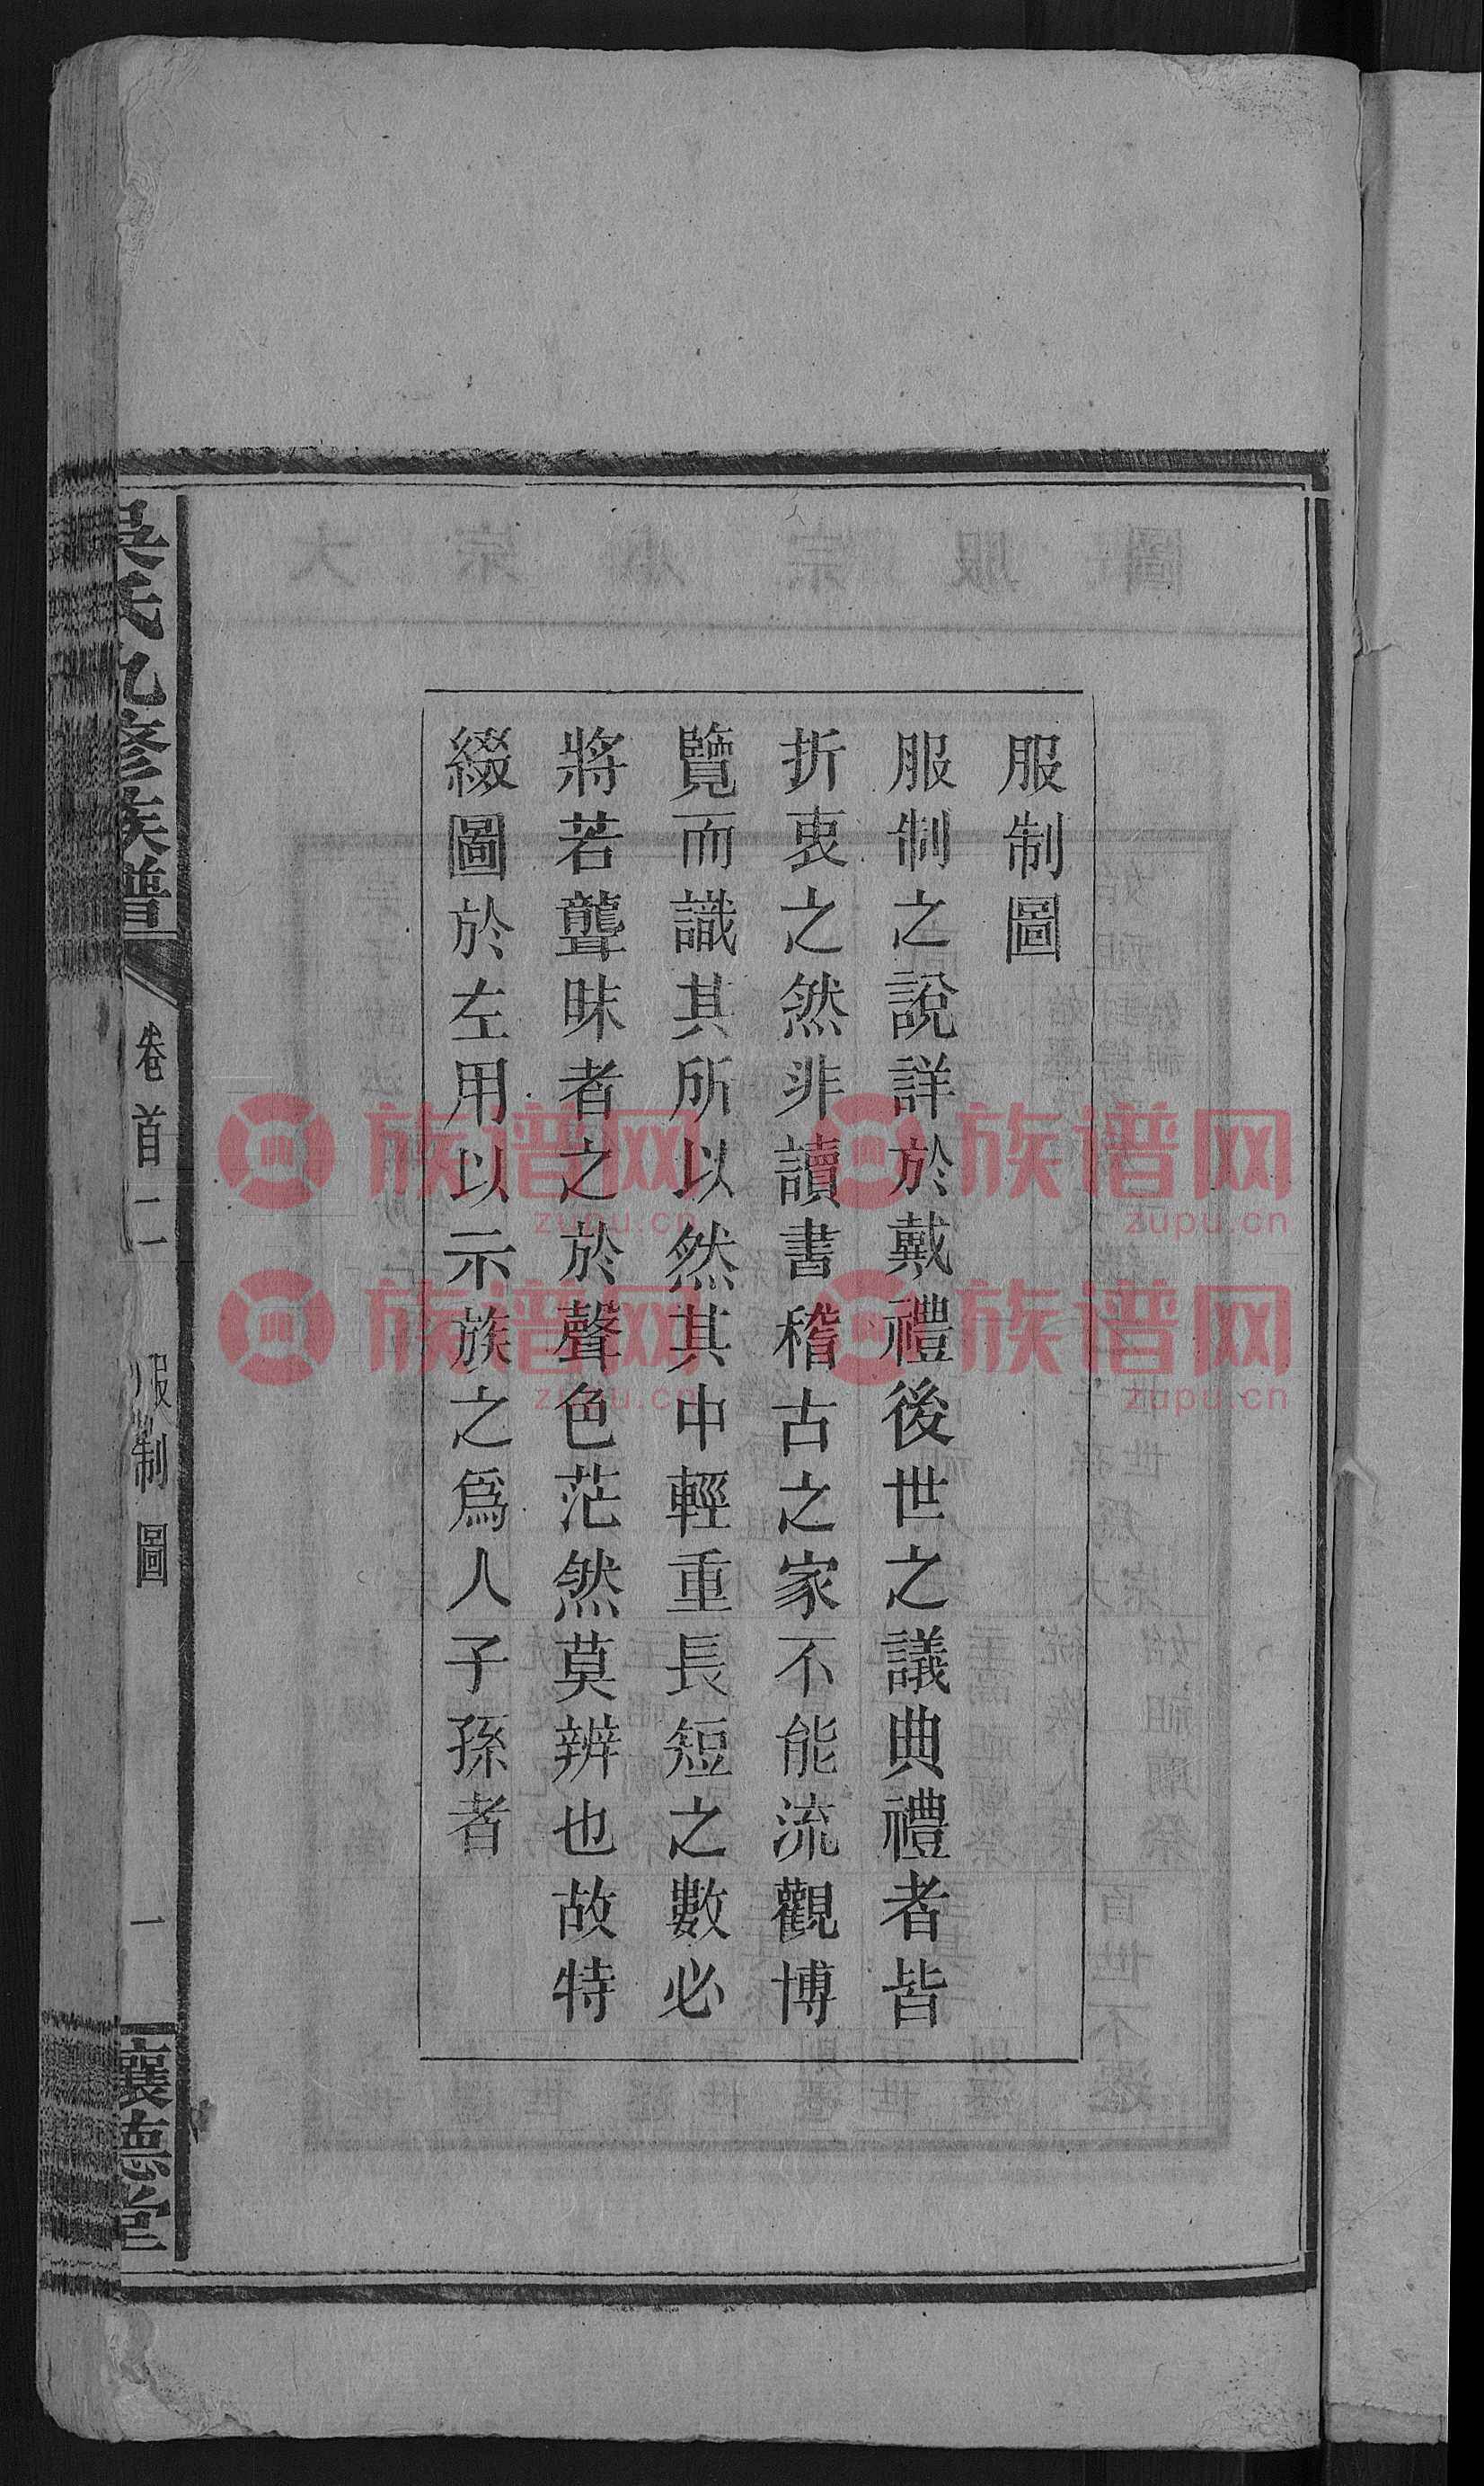 服制圖
服制之說詳於戴禮後世之議典禮者皆
折衷之然非讀書稽古之家不能流觀博
覽而識其所以然其中輕重長短之數必
將若聾昧者之於聲色茫然莫辨也故特
綴圖於左用以示族之爲人子孫者
吳氏九修族譜
卷首二
服制圖
一
讓德堂
族谱网
zupu.cn
族谱网
zupu.cn
族谱网
zupu.cn
族谱网
zupu.cn